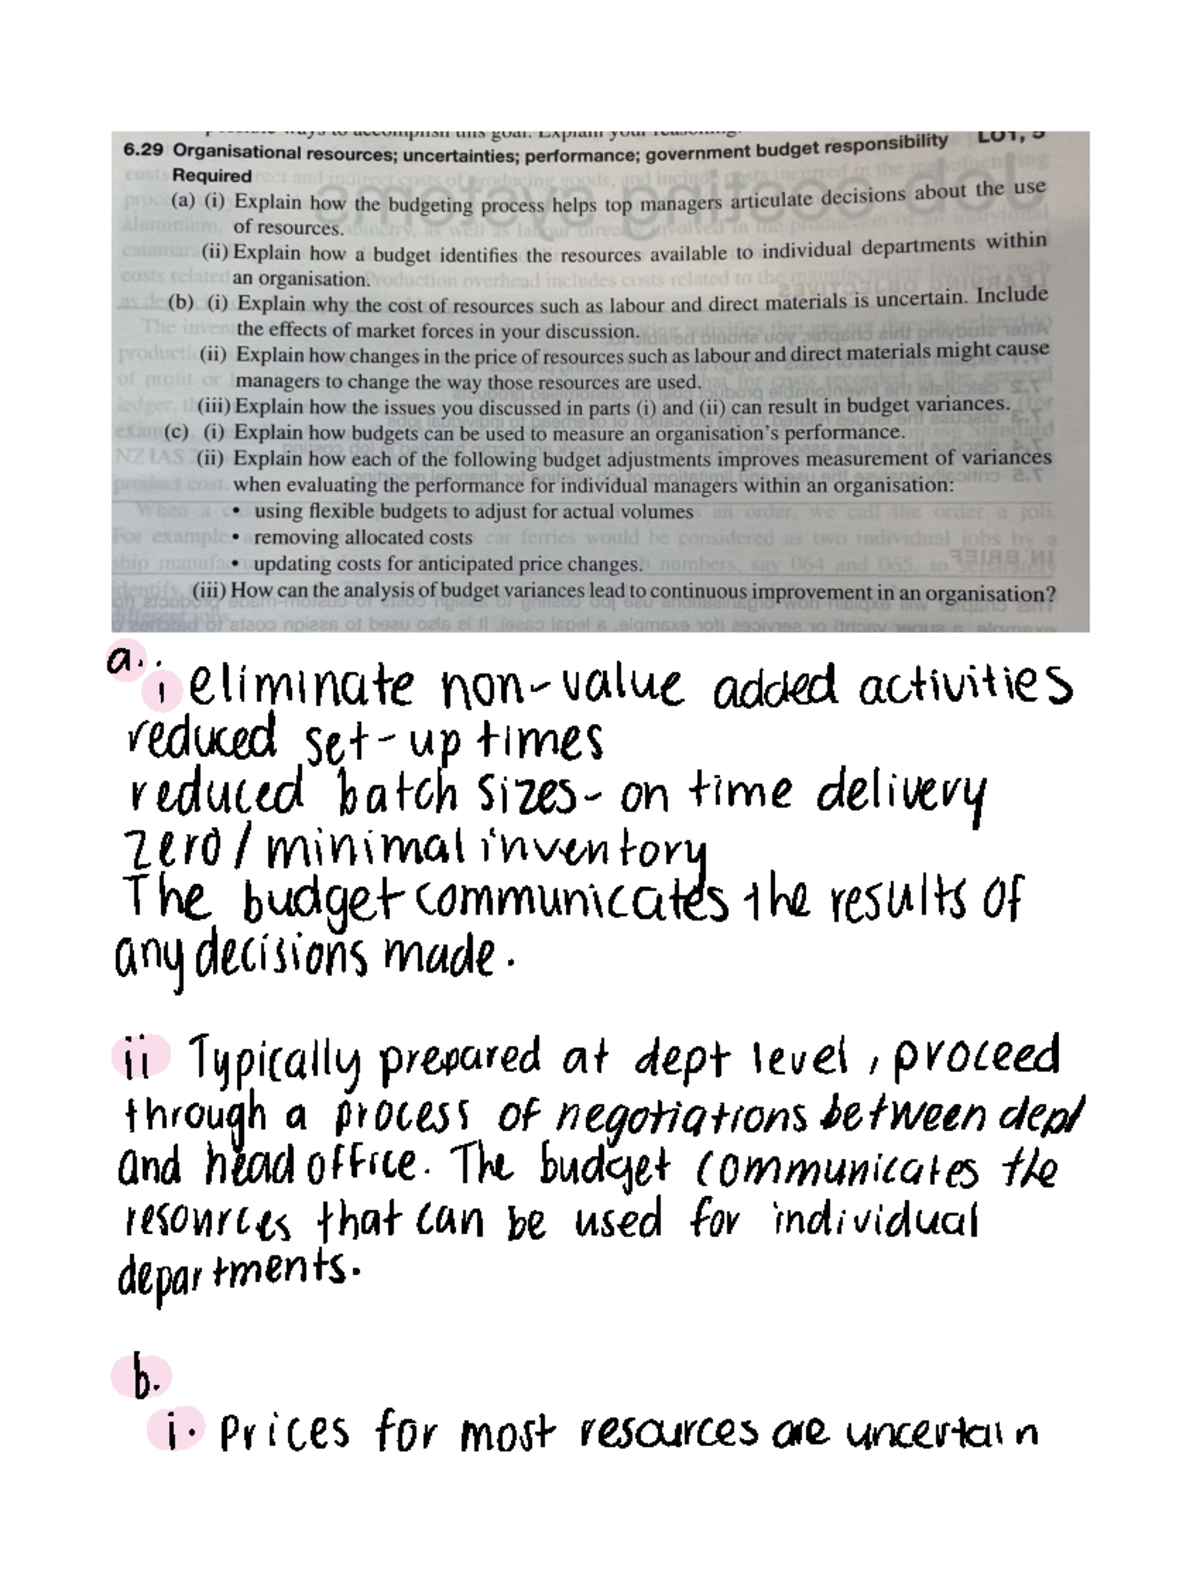 accomplish this goal. Explain your reasoning.
6.29 Organisational resources; uncertainties; performance; government budget responsibility LO1, 5
Required
(a) (i) Explain how the budgeting process helps top managers articulate decisions about the use
of resources.
(ii) Explain how a budget identifies the resources available to individual departments within
an organisation.
(b) (i) Explain why the cost of resources such as labour and direct materials is uncertain. Include
the effects of market forces in your discussion.
(ii) Explain how changes in the price of resources such as labour and direct materials might cause
managers to change the way those resources are used.
(iii) Explain how the issues you discussed in parts (i) and (ii) can result in budget variances.
(c) (i) Explain how budgets can be used to measure an organisation's performance.
(ii) Explain how each of the following budget adjustments improves measurement of variances
when evaluating the performance for individual managers within an organisation:
• using flexible budgets to adjust for actual volumes
• removing allocated costs
• updating costs for anticipated price changes.
(iii) How can the analysis of budget variances lead to continuous improvement in an organisation?
a. i eliminate non-value added activities
reduced set-up times
reduced batch sizes- on time delivery
zero/minimal inventory
The budget communicates the results of
any decisions made.
ii Typically prepared at dept level, proceed
through a process of negotiations between dept
and head office. The budget communicates the
resources that can be used for individual
departments.
b.
i. Prices for most resources are uncertain